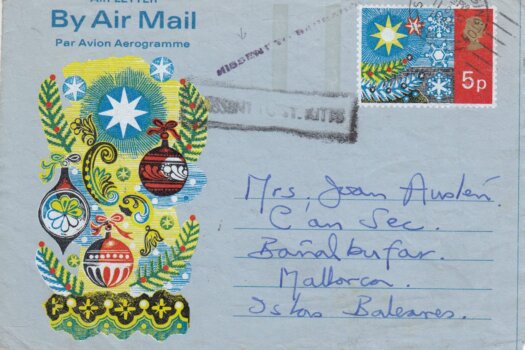 AIR LETTER
By Air Mail
Par Avion Aerogramme
MISSENT TO
MISSENT TO ST. KITTS
5p
Mrs. Joan Austen.
C'an Sec.
Bañalbufar.
Mallorca.
Islas Baleares.